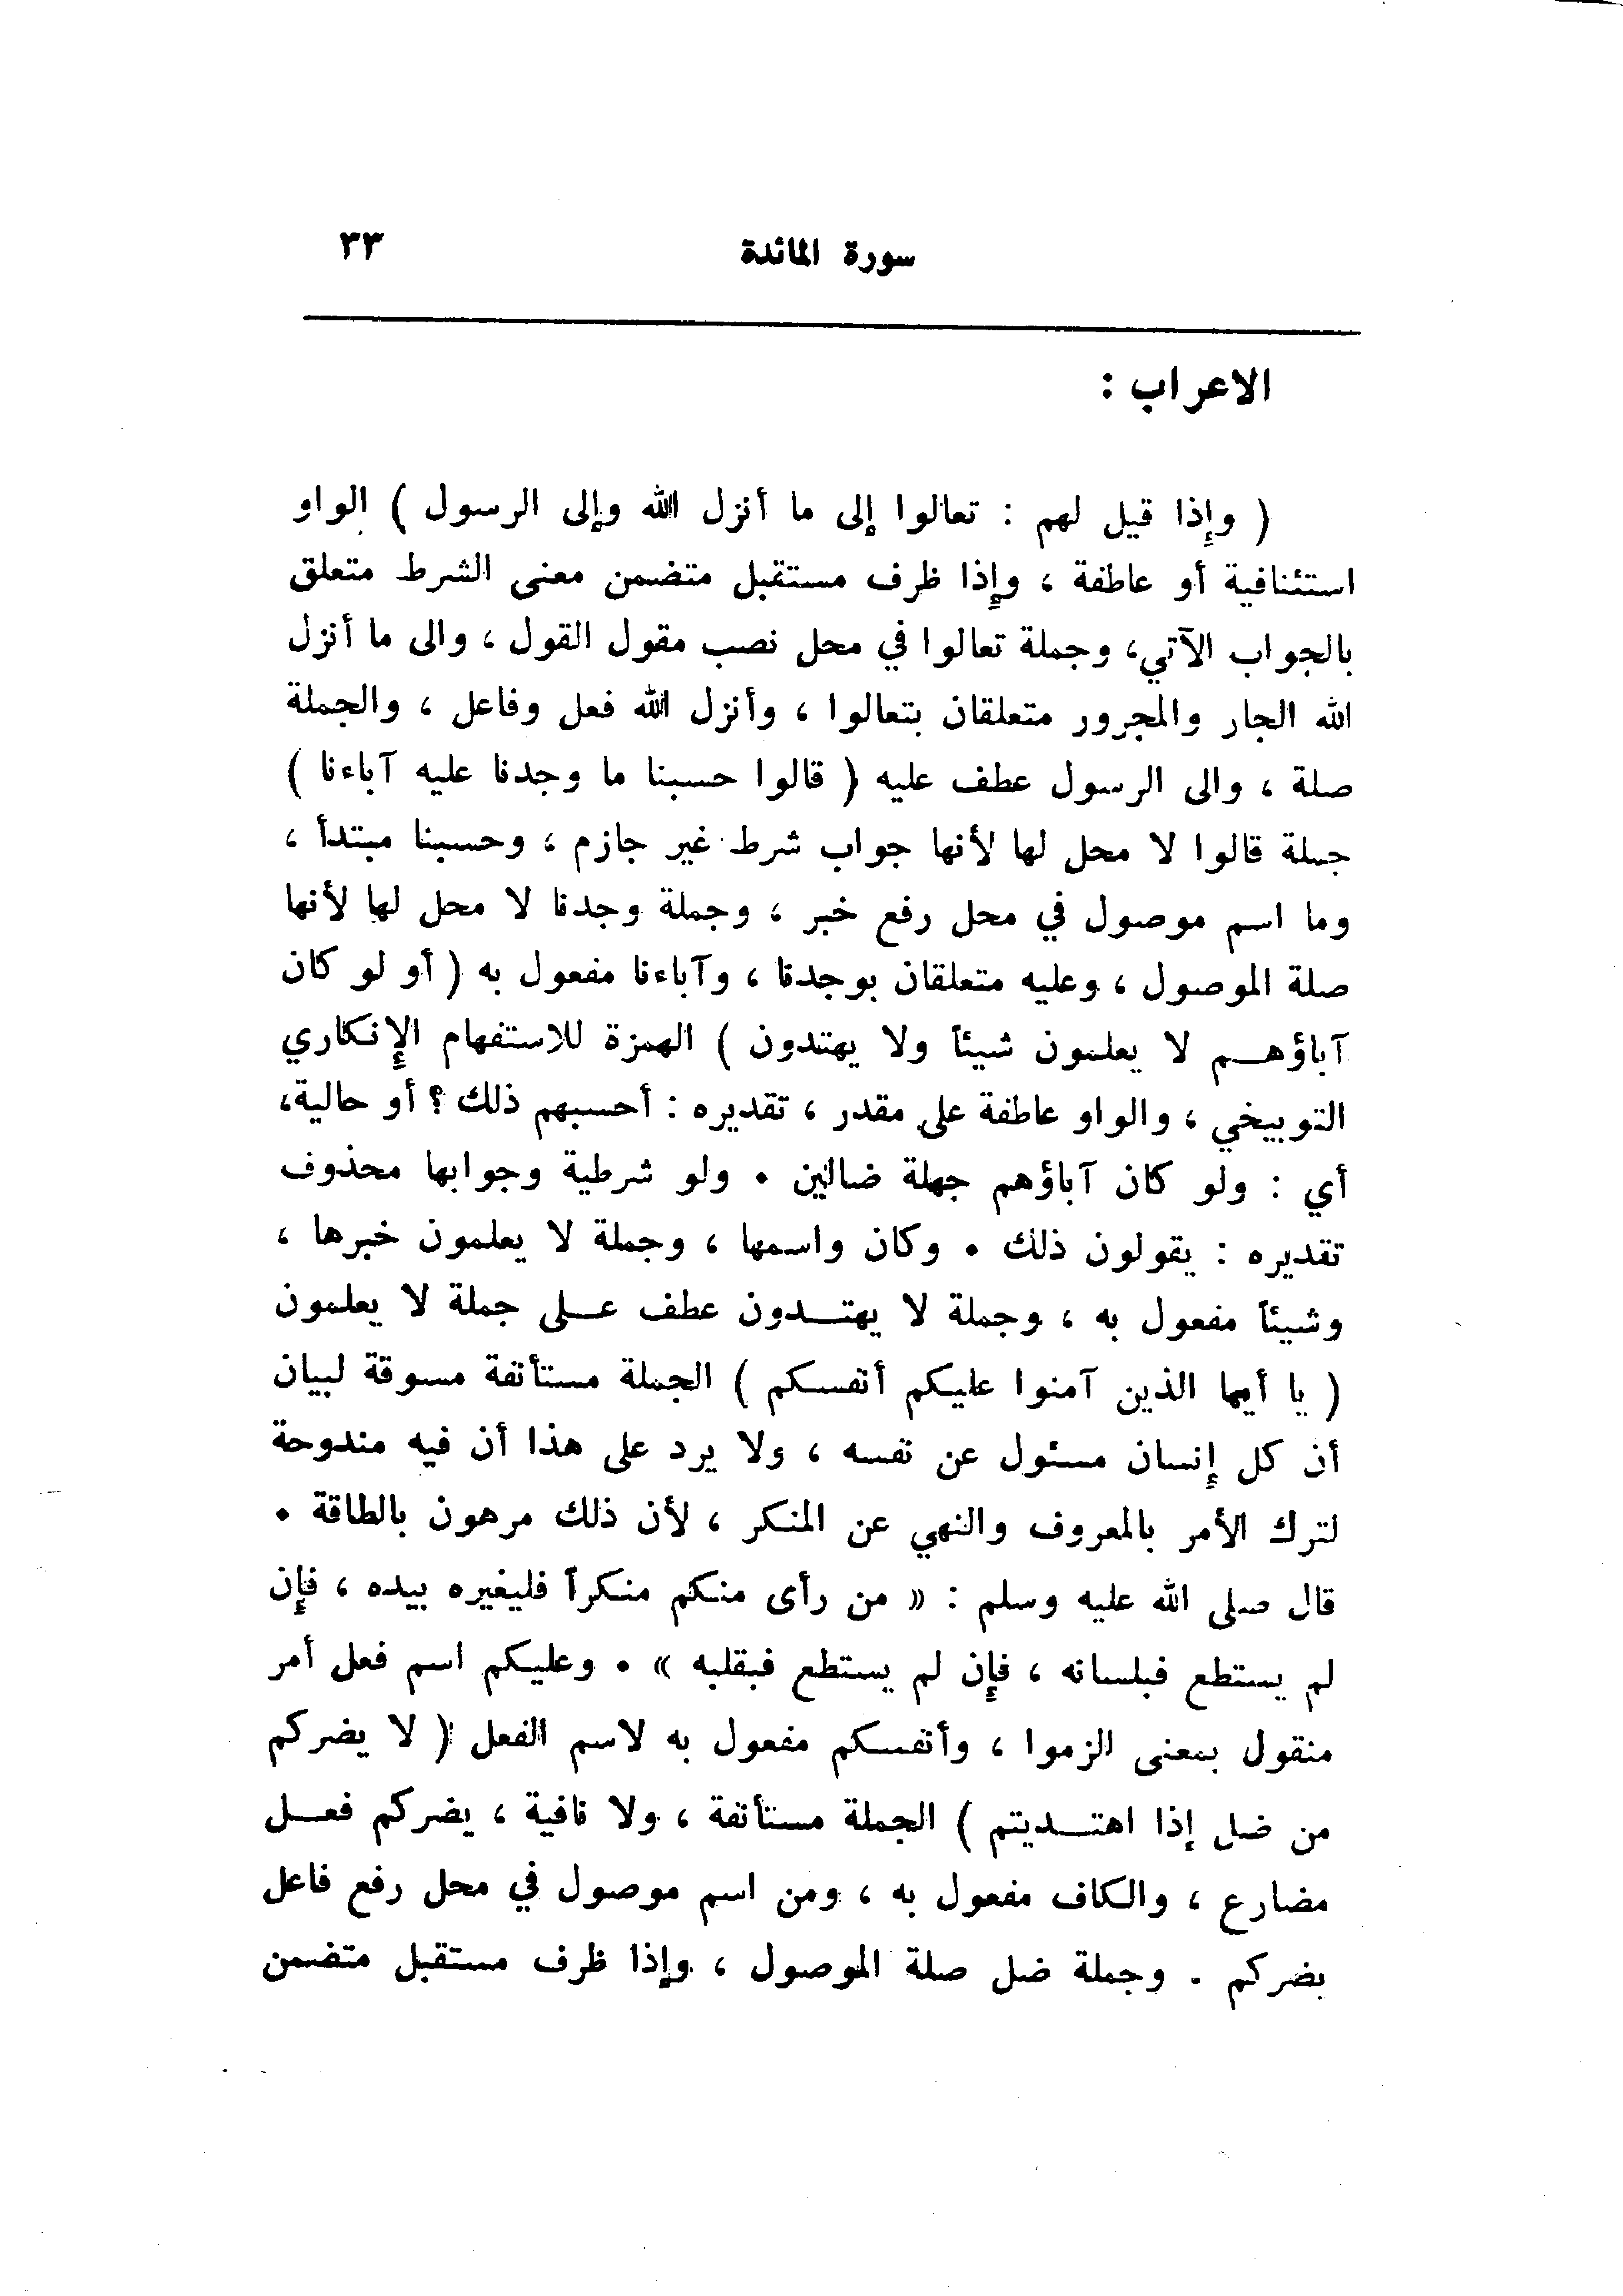 سورة المائدة ٣٣
الاعراب :
( وإذا قيل لهم : تعالوا إلى ما أنزل الله وإلى الرسول ) الواو
استئنافية أو عاطفة ، وإذا ظرف مستقبل متضمن معنى الشرط متعلق
بالجواب الآتي، وجملة تعالوا في محل نصب مقول القول ، والى ما أنزل
الله الجار والمجرور متعلقان بتعالوا ، وأنزل الله فعل وفاعل ، والجملة
صلة ، والى الرسول عطف عليه ( قالوا حسبنا ما وجدنا عليه آباءنا )
جملة قالوا لا محل لها لأنها جواب شرط غير جازم ، وحسبنا مبتدأ ،
وما اسم موصول في محل رفع خبر ، وجملة وجدنا لا محل لها لأنها
صلة الموصول ، وعليه متعلقان بوجدنا ، وآباءنا مفعول به ( أو لو كان
آباؤهـم لا يعلمون شيئاً ولا يهتدون ) الهمزة للاستفهام الإنكاري
التوبيخي ، والواو عاطفة على مقدر ، تقديره : أحسبهم ذلك ؟ أو حالية،
أي : ولو كان آباؤهم جهلة ضالين . ولو شرطية وجوابها محذوف
تقديره : يقولون ذلك . وكان واسمها ، وجملة لا يعلمون خبرها ،
وشيئاً مفعول به ، وجملة لا يهتـدون عطف عـلى جملة لا يعلمون
( يا أيها الذين آمنوا عليكم أنفسكم ) الجملة مستأنفة مسوقة لبيان
أن كل إنسان مسئول عن نفسه ، ولا يرد على هذا أن فيه مندوحة
لترك الأمر بالمعروف والنهي عن المنكر ، لأن ذلك مرهون بالطاقة .
قال صلى الله عليه وسلم : « من رأى منكم منكراً فليغيره بيده ، فإن
لم يستطع فبلسانه ، فإن لم يستطع فبقلبه » . وعليكم اسم فعل أمر
منقول بمعنى الزموا ، وأنفسكم مفعول به لاسم الفعل ( لا يضركم
من ضل إذا اهتـديتم ) الجملة مستأنفة ، ولا نافية ، يضركم فعـل
مضارع ، والكاف مفعول به ، ومن اسم موصول في محل رفع فاعل
يضركم . وجملة ضل صلة الموصول ، وإذا ظرف مستقبل متضمن